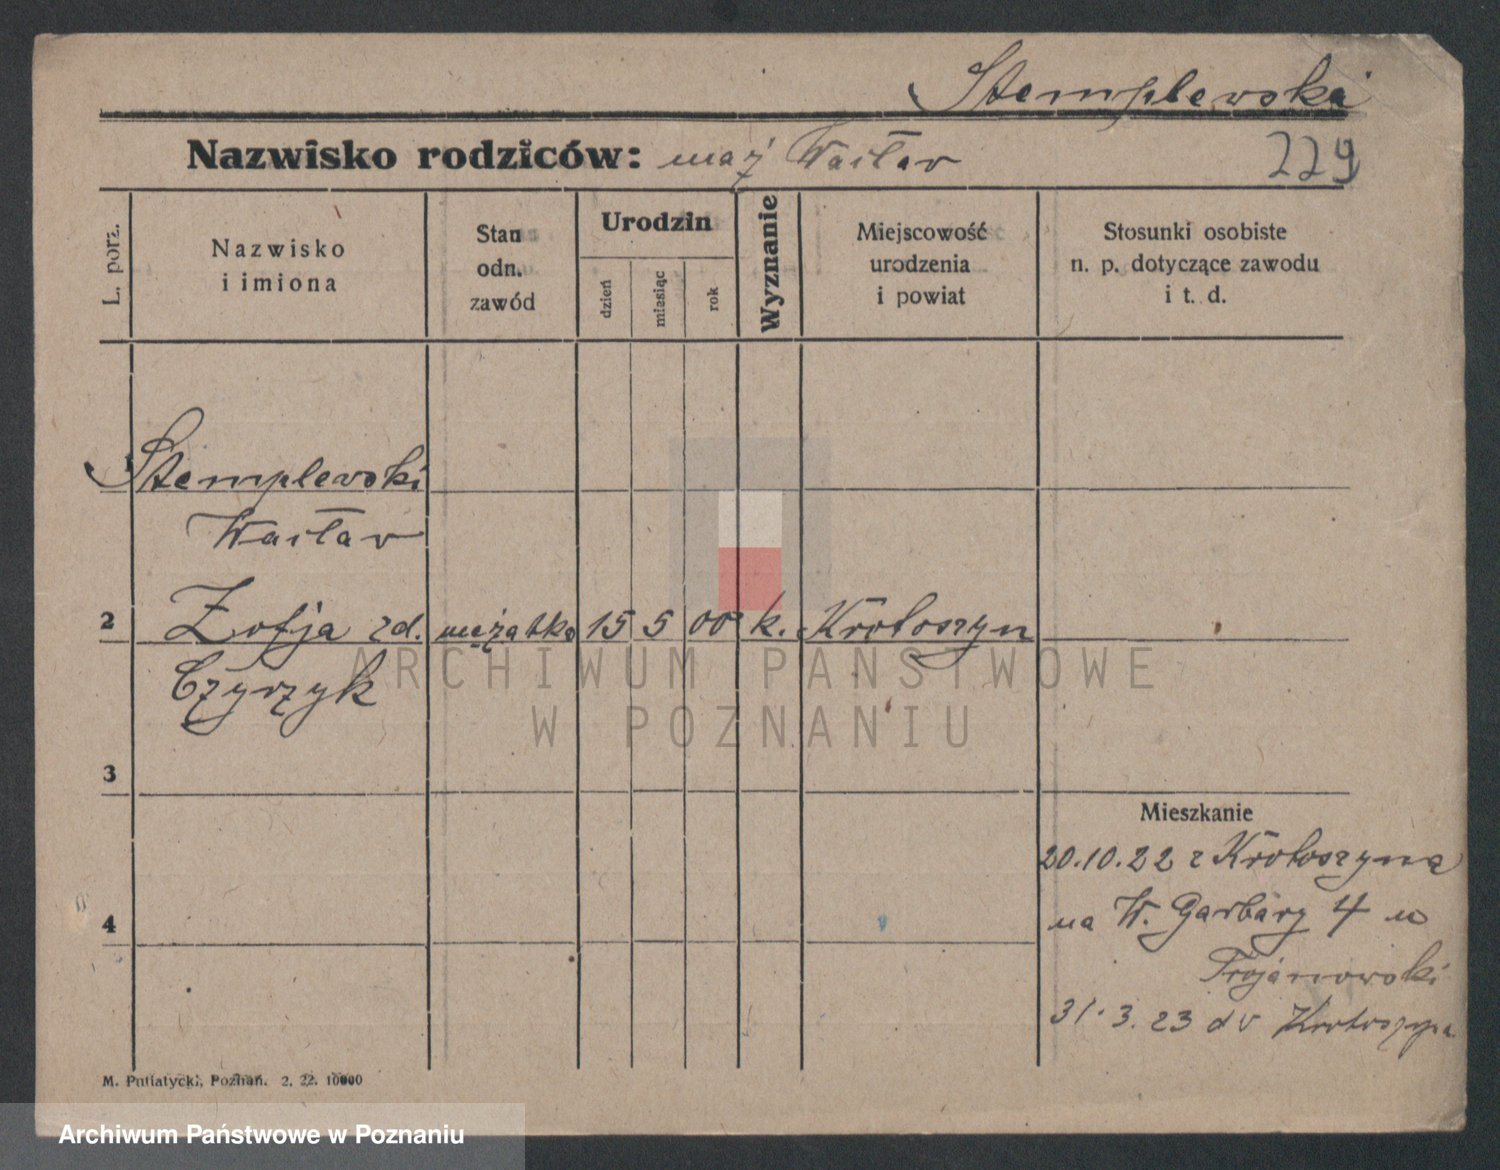 Stemplewska
Nazwisko rodziców: mąż Wacław 229
L. porz.
Nazwisko
i imiona
Stan
odn.
zawód
Urodzin
dzień
miesiąc
rok
Wyznanie
Miejscowość
urodzenia
i powiat
Stosunki osobiste
n. p. dotyczące zawodu
i t. d.
1 Stemplewski
Wacław
2 Zofja zd. mężatka 15 5 00 k. Krotoszyn
Czyrzyk
3
Mieszkanie
20.10.22 z Krotoszyna
na W. Garbary 4 u
4
Trojanowski
31.3.23 do Krotoszyna
M. Putiatycki, Poznań. 2. 22. 10000
ARCHIWUM PAŃSTWOWE
W POZNANIU
Archiwum Państwowe w Poznaniu